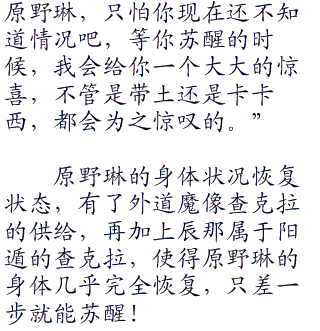 原野琳，只怕你现在还不知
道情况吧，等你苏醒的时
候，我会给你一个大大的惊
喜，不管是带土还是卡卡
西，都会为之惊叹的。”
原野琳的身体状况恢复
状态，有了外道魔像查克拉
的供给，再加上辰那属于阳
遁的查克拉，使得原野琳的
身体几乎完全恢复，只差一
步就能苏醒！